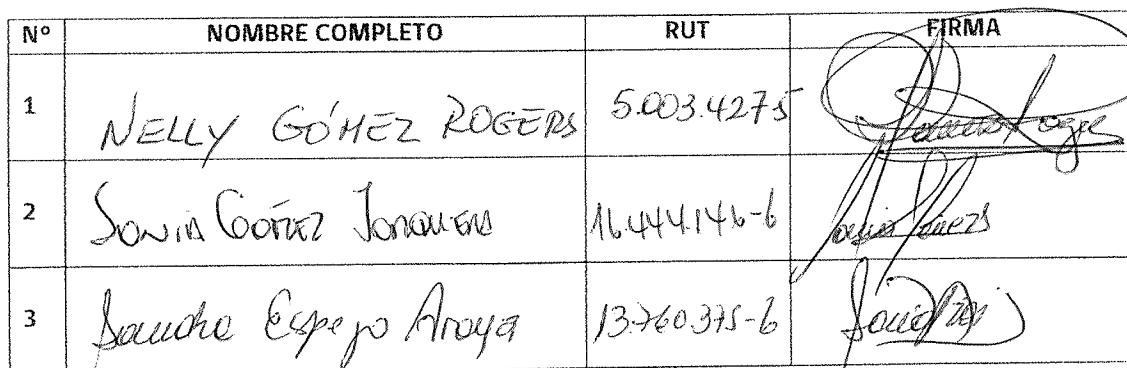 Nº NOMBRE COMPLETO RUT FIRMA
1 NELLY GÓMEZ ROGERS 5.003.427-5
2 SONIA GÓMEZ JORQUERA 16.444.146-6
3 Espejo Araya 13.760.375-6